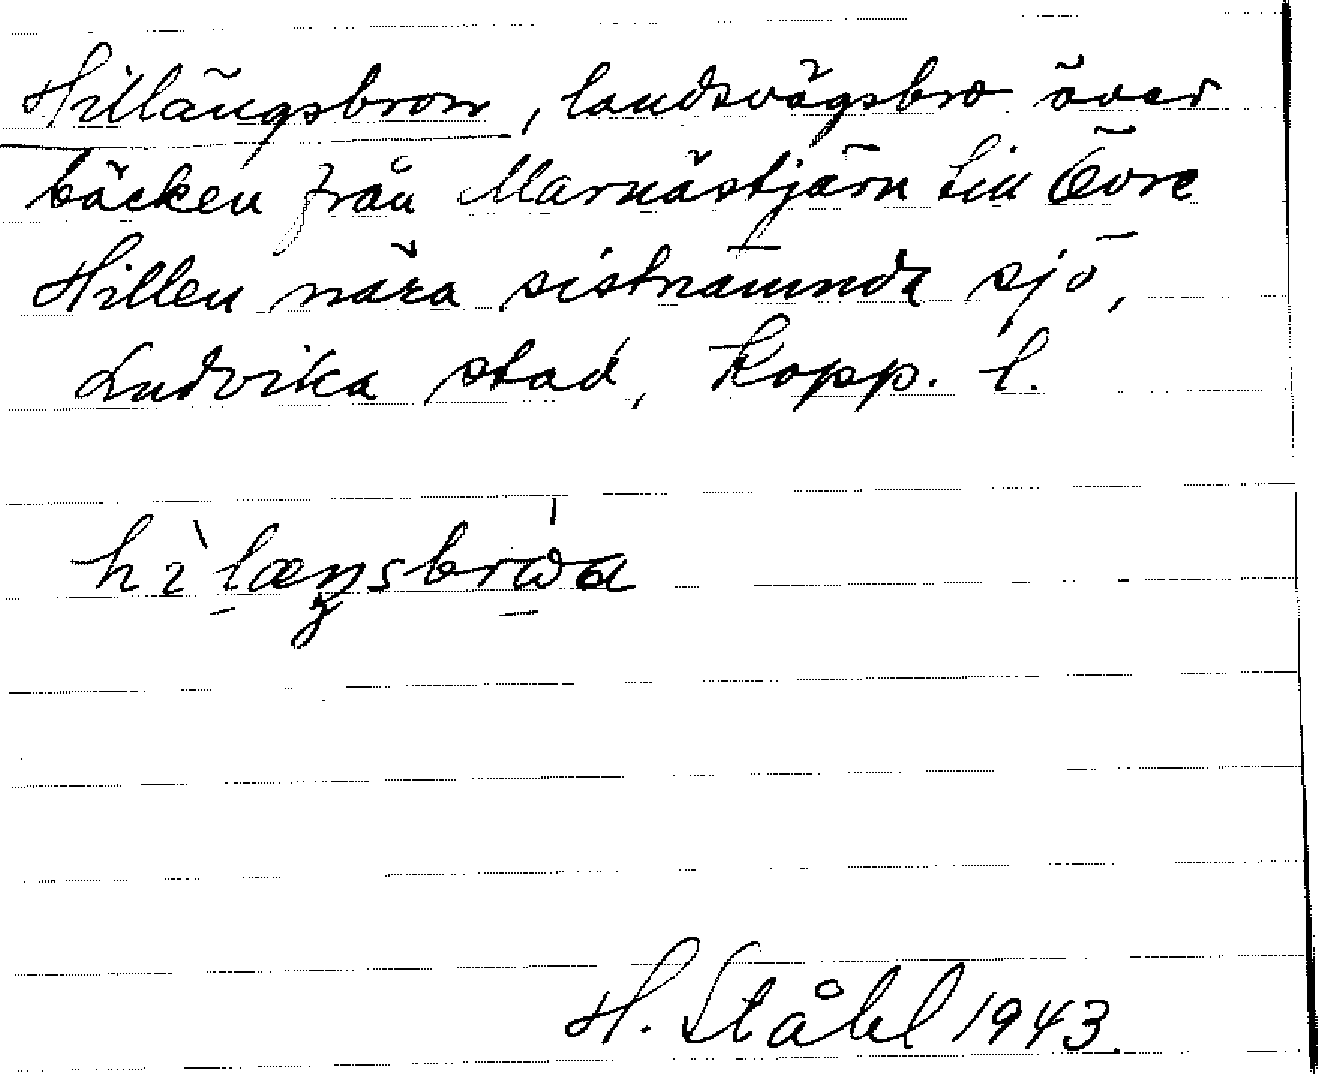 Hillängsbron, landsvägsbro över
bäcken från Marnästjärn till Övre
Hillen nära sistnämnda sjö,
Ludvika stad, Kopp. l.
H. Ståhl 1943.